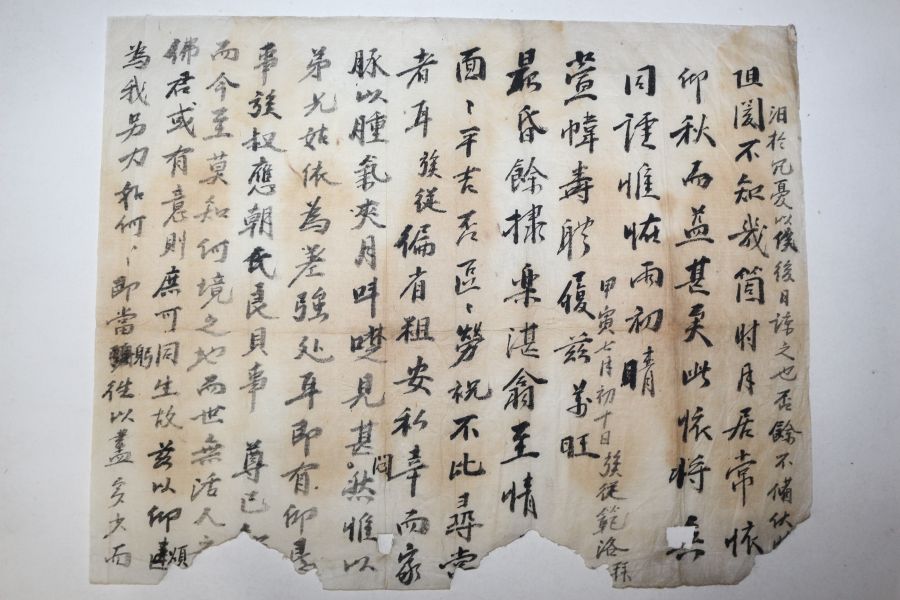 阻闊不知幾箇时月居常懷
仰秋而益甚矣此懷將
同謹惟恠雨初晴
萱幃壽聆履茲萬旺
晨昏餘棣樂湛翕至情
面〻平吉否區〻勞祝不比尋常
者耳族從徧省粗安私幸而家
脉以腫氣夾月呌囋見甚悶然惟以
弟兄姑依為差強处耳即有仰
事族叔應朝氏良貝事尊已
而今至莫知何境之地而世無活人之
佛君或有意則庶可同生故茲以仰煩
為我另力如何〻即當躬徃以盡多少而
汨於冗憂以後日諒之也否餘不備伏
甲寅七月初十日族從範洛拜